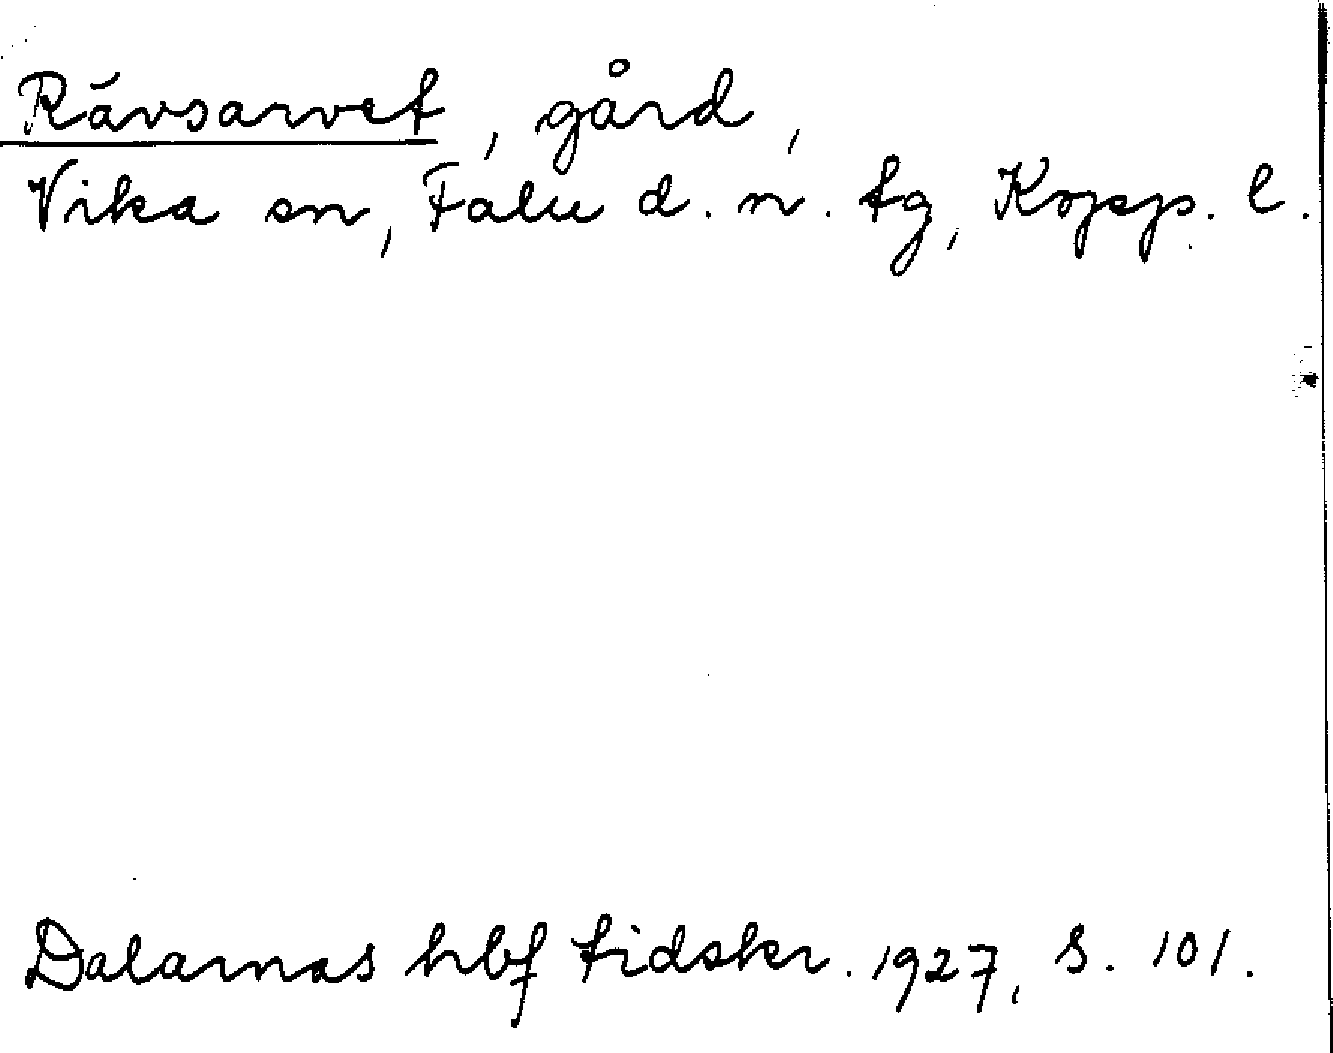 Rävsarvet, gård,
Vika sn, Falu d. n. tg, Kopp. l.
Dalarnas hbf tidskr. 1927, s. 101.